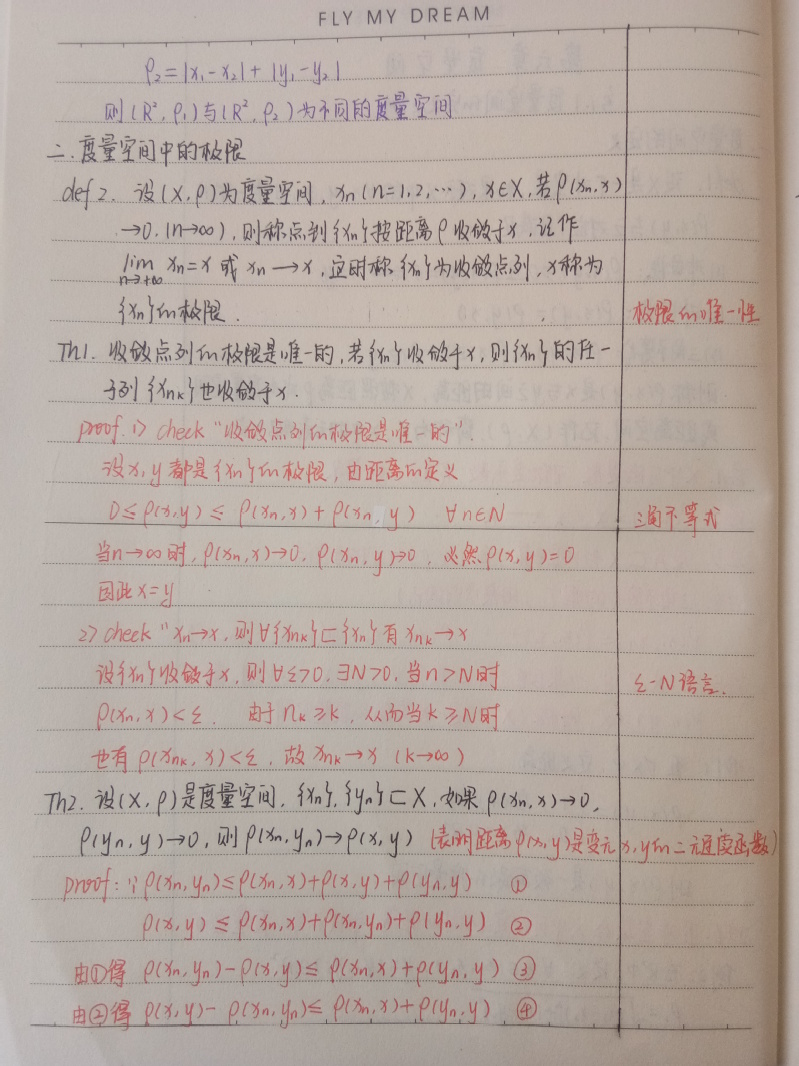 FLY MY DREAM
ρ₂=|x₁-x₂|+|y₁-y₂|
则(R²,ρ₁)与(R²,ρ₂)为不同的度量空间
二.度量空间中的极限
def 2. 设(X,ρ)为度量空间, xn(n=1,2,…), x∈X, 若ρ(xn,x)
→0.(n→∞), 则称点列{xn}按距离ρ收敛于x, 记作
lim xn=x 或 xn→x, 这时称{xn}为收敛点列, x称为
n→+∞
{xn}的极限.
极限的唯一性
Th1. 收敛点列的极限是唯一的, 若{xn}收敛于x, 则{xn}的任一
子列{xnk}也收敛于x.
proof. 1> check "收敛点列的极限是唯一的".
设x,y都是{xn}的极限, 由距离的定义
0≤ρ(x,y)≤ρ(xn,x)+ρ(xn,y) ∀n∈N
三角不等式
当n→∞时, ρ(xn,x)→0. ρ(xn,y)→0, 必然ρ(x,y)=0
因此x=y
2> check "xn→x, 则∀{xnk}⊏{xn}有xnk→x
设{xn}收敛于x, 则∀ε>0, ∃N>0, 当n>N时
ε-N语言.
ρ(xn,x)<ε. 由于nk≥k, 从而当k≥N时
也有ρ(xnk,x)<ε, 故xnk→x (k→∞)
Th2. 设(X,ρ)是度量空间, {xn},{yn}⊏X, 如果ρ(xn,x)→0,
ρ(yn,y)→0, 则ρ(xn,yn)→ρ(x,y) (表明距离ρ(x,y)是变元x,y的二元连续函数)
proof: ∵ρ(xn,yn)≤ρ(xn,x)+ρ(x,y)+ρ(yn,y) ①
ρ(x,y)≤ρ(xn,x)+ρ(xn,yn)+ρ(yn,y) ②
由①得 ρ(xn,yn)-ρ(x,y)≤ρ(xn,x)+ρ(yn,y) ③
由②得 ρ(x,y)-ρ(xn,yn)≤ρ(xn,x)+ρ(yn,y) ④